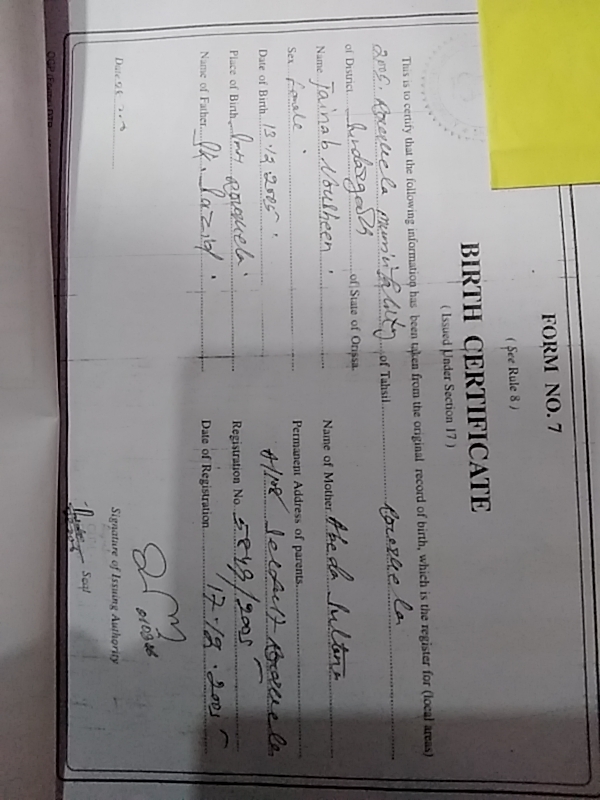 FORM NO. 7
( See Rule 8 )
BIRTH CERTIFICATE
( Issued Under Section 17 )
This is to certify that the following information has been taken from the original record of birth, which is the register for (local areas)
2005 Rourkela Municipality of Tahsil Rourkela
of District Sundargarh of State of Orissa.
Name Jainab Nousheen
Name of Mother Abeda Sultana
Sex Female
Permanent Address of parents.
Date of Birth 13.12.2005
Sector-17 Rourkela
Place of Birth Rourkela
Registration No. 5849/2005
Name of Father Sk. Sazid
Date of Registration 17.12.2005
Date
Signature of Issuing Authority
Seal